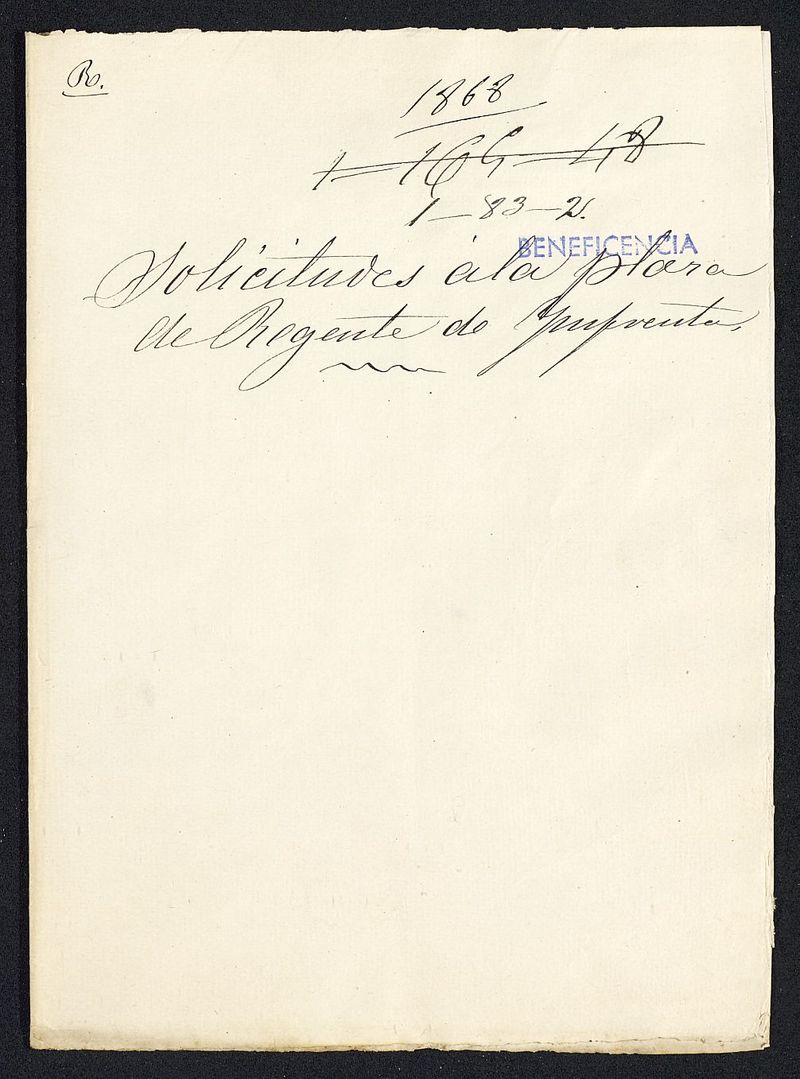 R.
1868
1-165-48
1-83-2.
BENEFICENCIA
Solicitudes á la plaza
de Regente de Imprenta.